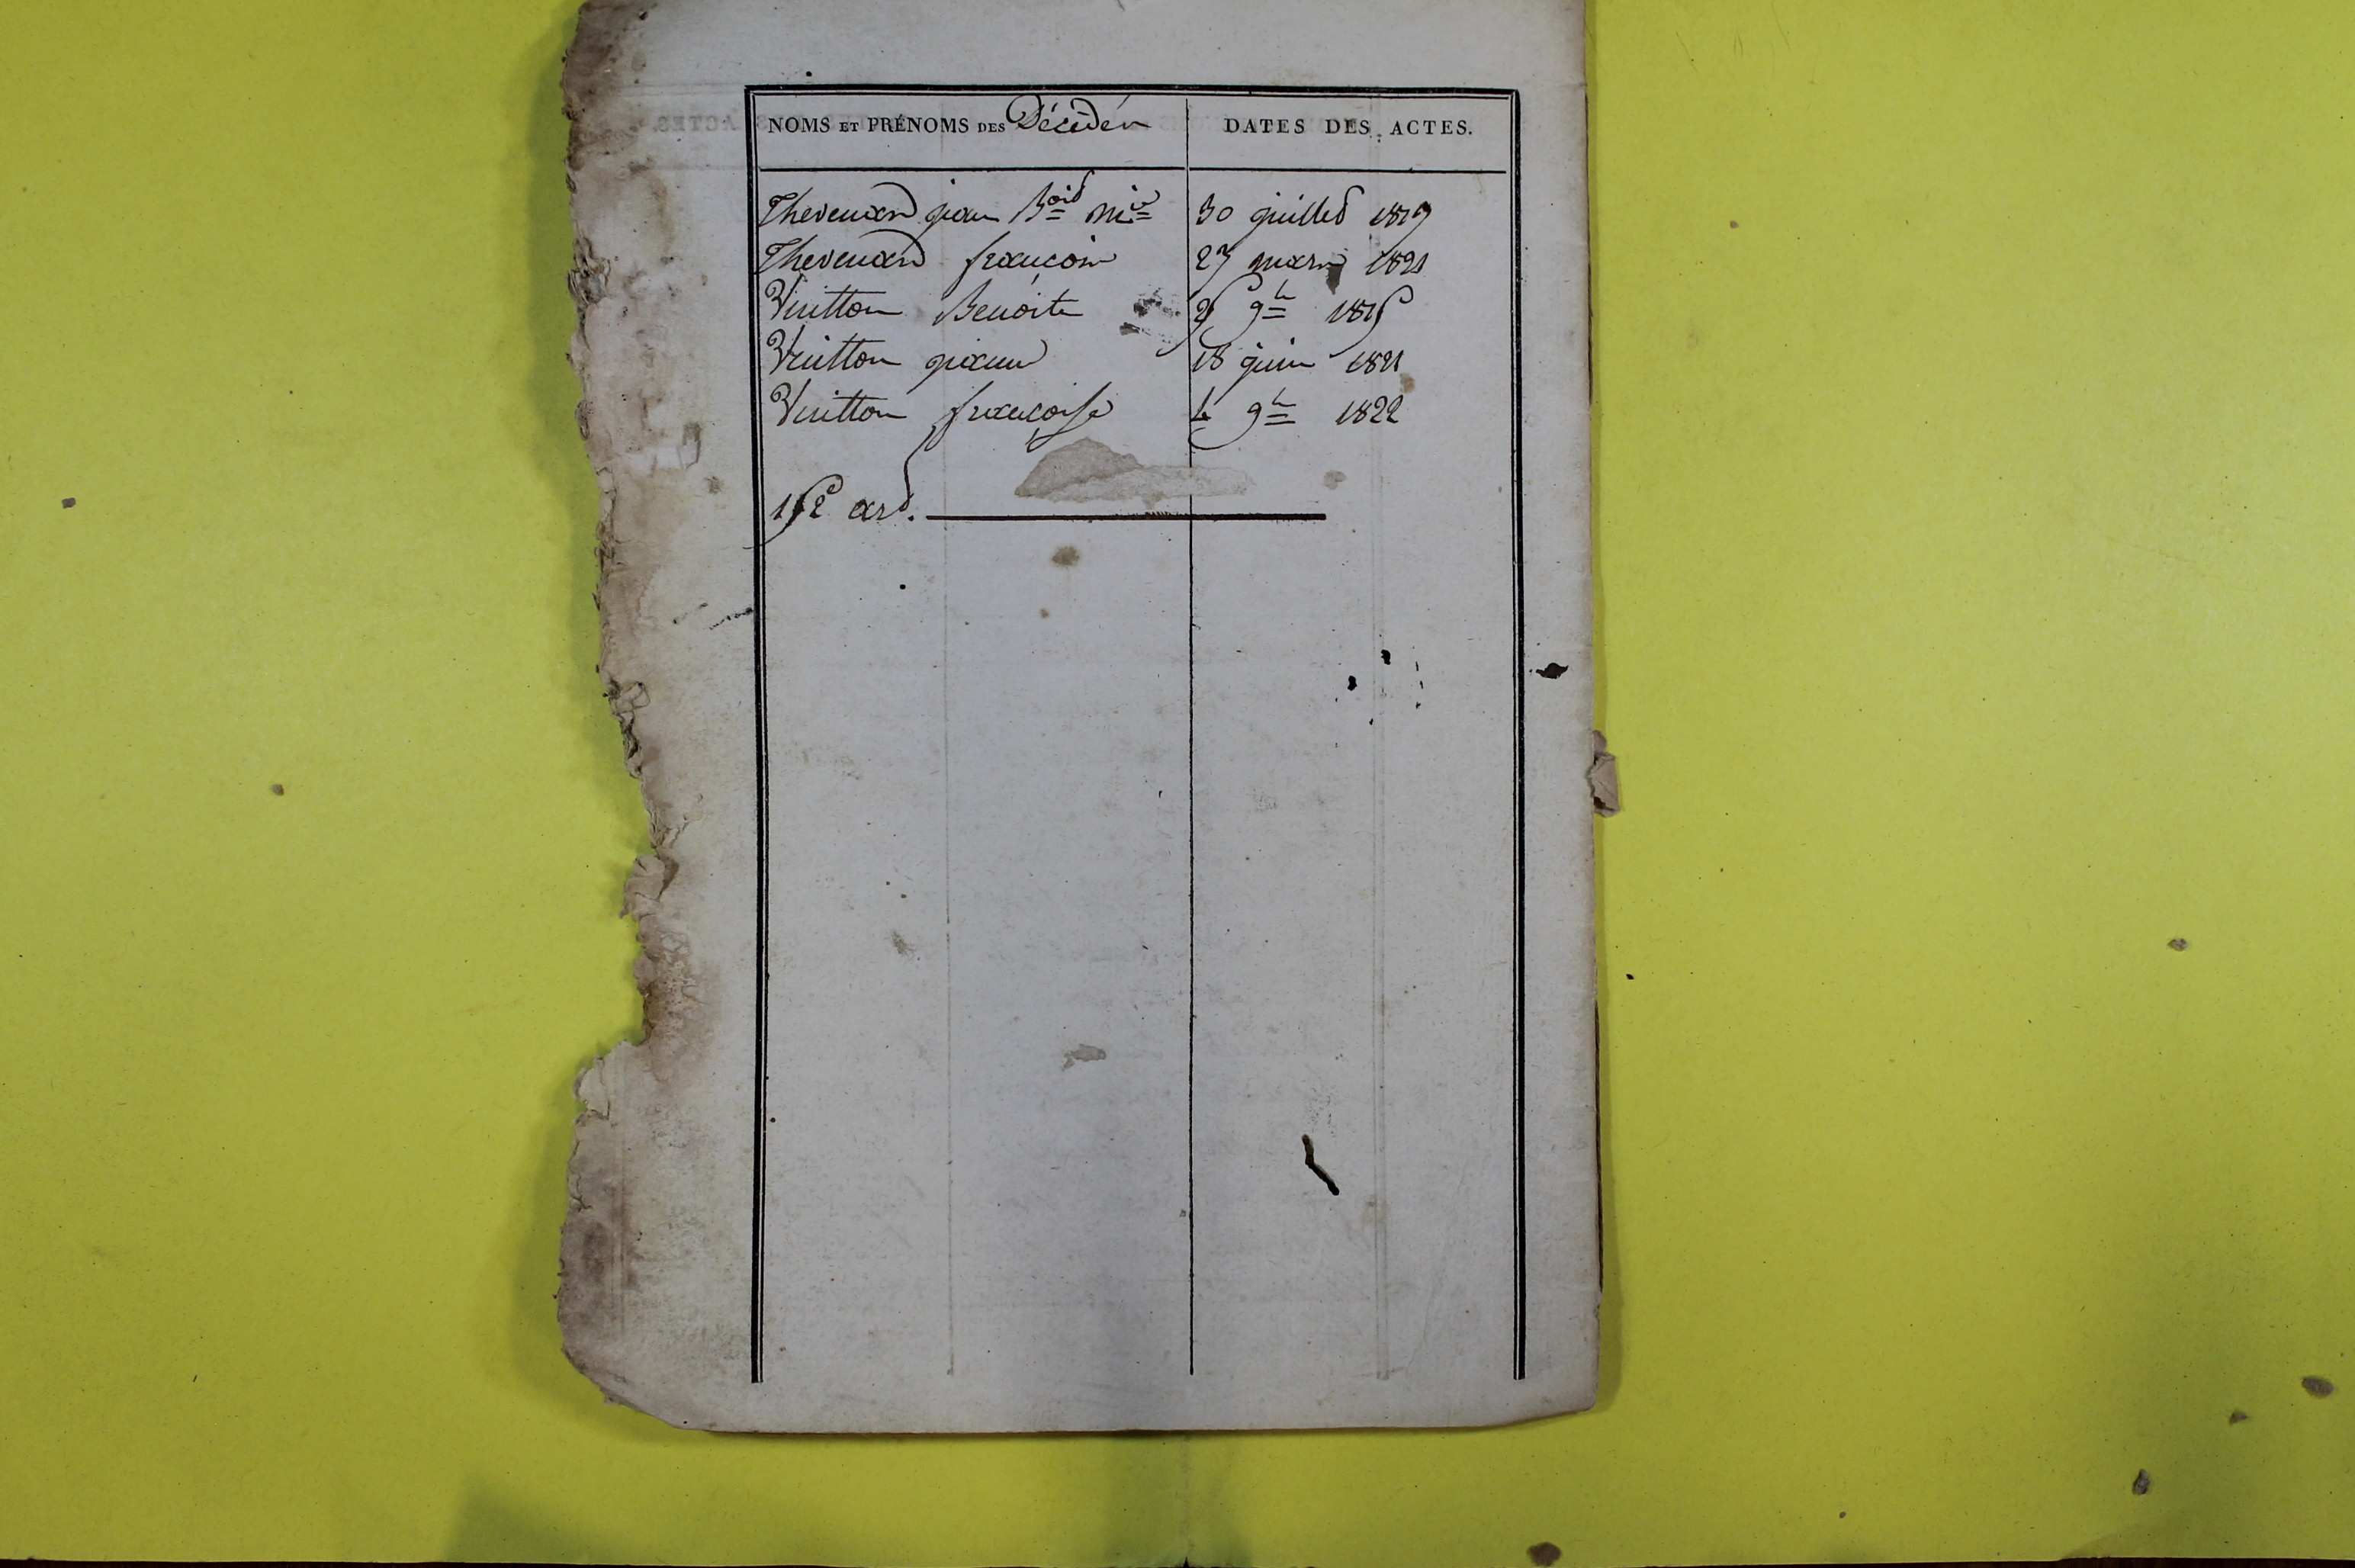 NOMS ET PRÉNOMS DES Décédés DATES DES ACTES.
Thevenard jean Boit Mie 30 juillet 1819
Thevenard françois 27 mars 1821
Vuitton Benoite 25 9bre 1815
Vuitton jeanne 18 juin 1821
Vuitton françoise 9bre 1822
152 art.